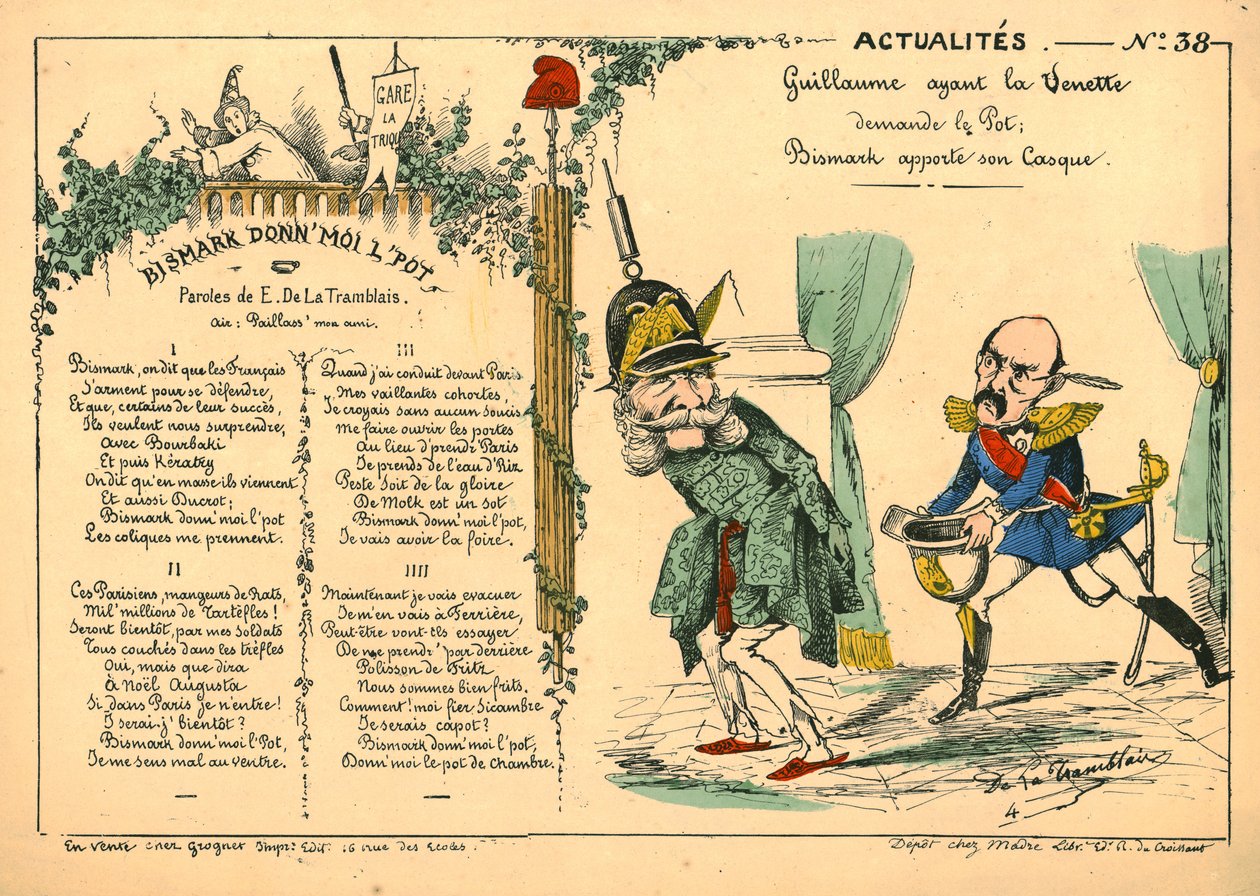 ACTUALITÉS . — No 38
Guillaume ayant la Venette
demande le Pot;
Bismark apporte son Casque.
GARE
LA
TRIQU
BISMARK DONN'MOI L'POT
Paroles de E. De La Tramblais.
Air: Paillass' mon ami.
I
Bismark, on dit que les Français
S'arment pour se défendre,
Et que, certains de leur succès,
Ils veulent nous surprendre,
Avec Bourbaki
Et puis Kératry
On dit qu'en masse ils viennent
Et aussi Ducrot;
Bismark donn'moi l'pot
Les coliques me prennent.
II
Ces Parisiens, mangeurs de Rats,
Mil'millions de Tartèfles!
Seront bientôt, par mes soldats
Tous couchés dans les trèfles
Oui, mais que dira
À Noël Augusta
Si dans Paris je n'entre!
I serai-j'bientôt?
Bismark donn'moi l'Pot,
Je me sens mal au ventre.
III
Quand j'ai conduit devant Paris
Mes vaillantes cohortes,
Je croyais sans aucun soucis
Me faire ouvrir les portes
Au lieu d'prendr'Paris
Je prends de l'eau d'Riz
Peste soit de la gloire
De Molk est un sot
Bismark donn'moi l'pot,
Je vais avoir la foire.
IIII
Maintenant je vais evacuer
Je m'en vais à Ferrière,
Peut-être vont-ils essayer
De me prendr'par derrière
Polisson de Fritz
Nous sommes bien frits.
Comment! moi fier Sicambre
Je serais capot?
Bismark donn'moi l'pot,
Donn'moi le pot de chambre.
De La Tramblais
4
En Vente chez Grognet Impr. Edit. 16 rue des Ecoles.
Dépôt chez Madre Libr. Edr. R. du Croissant